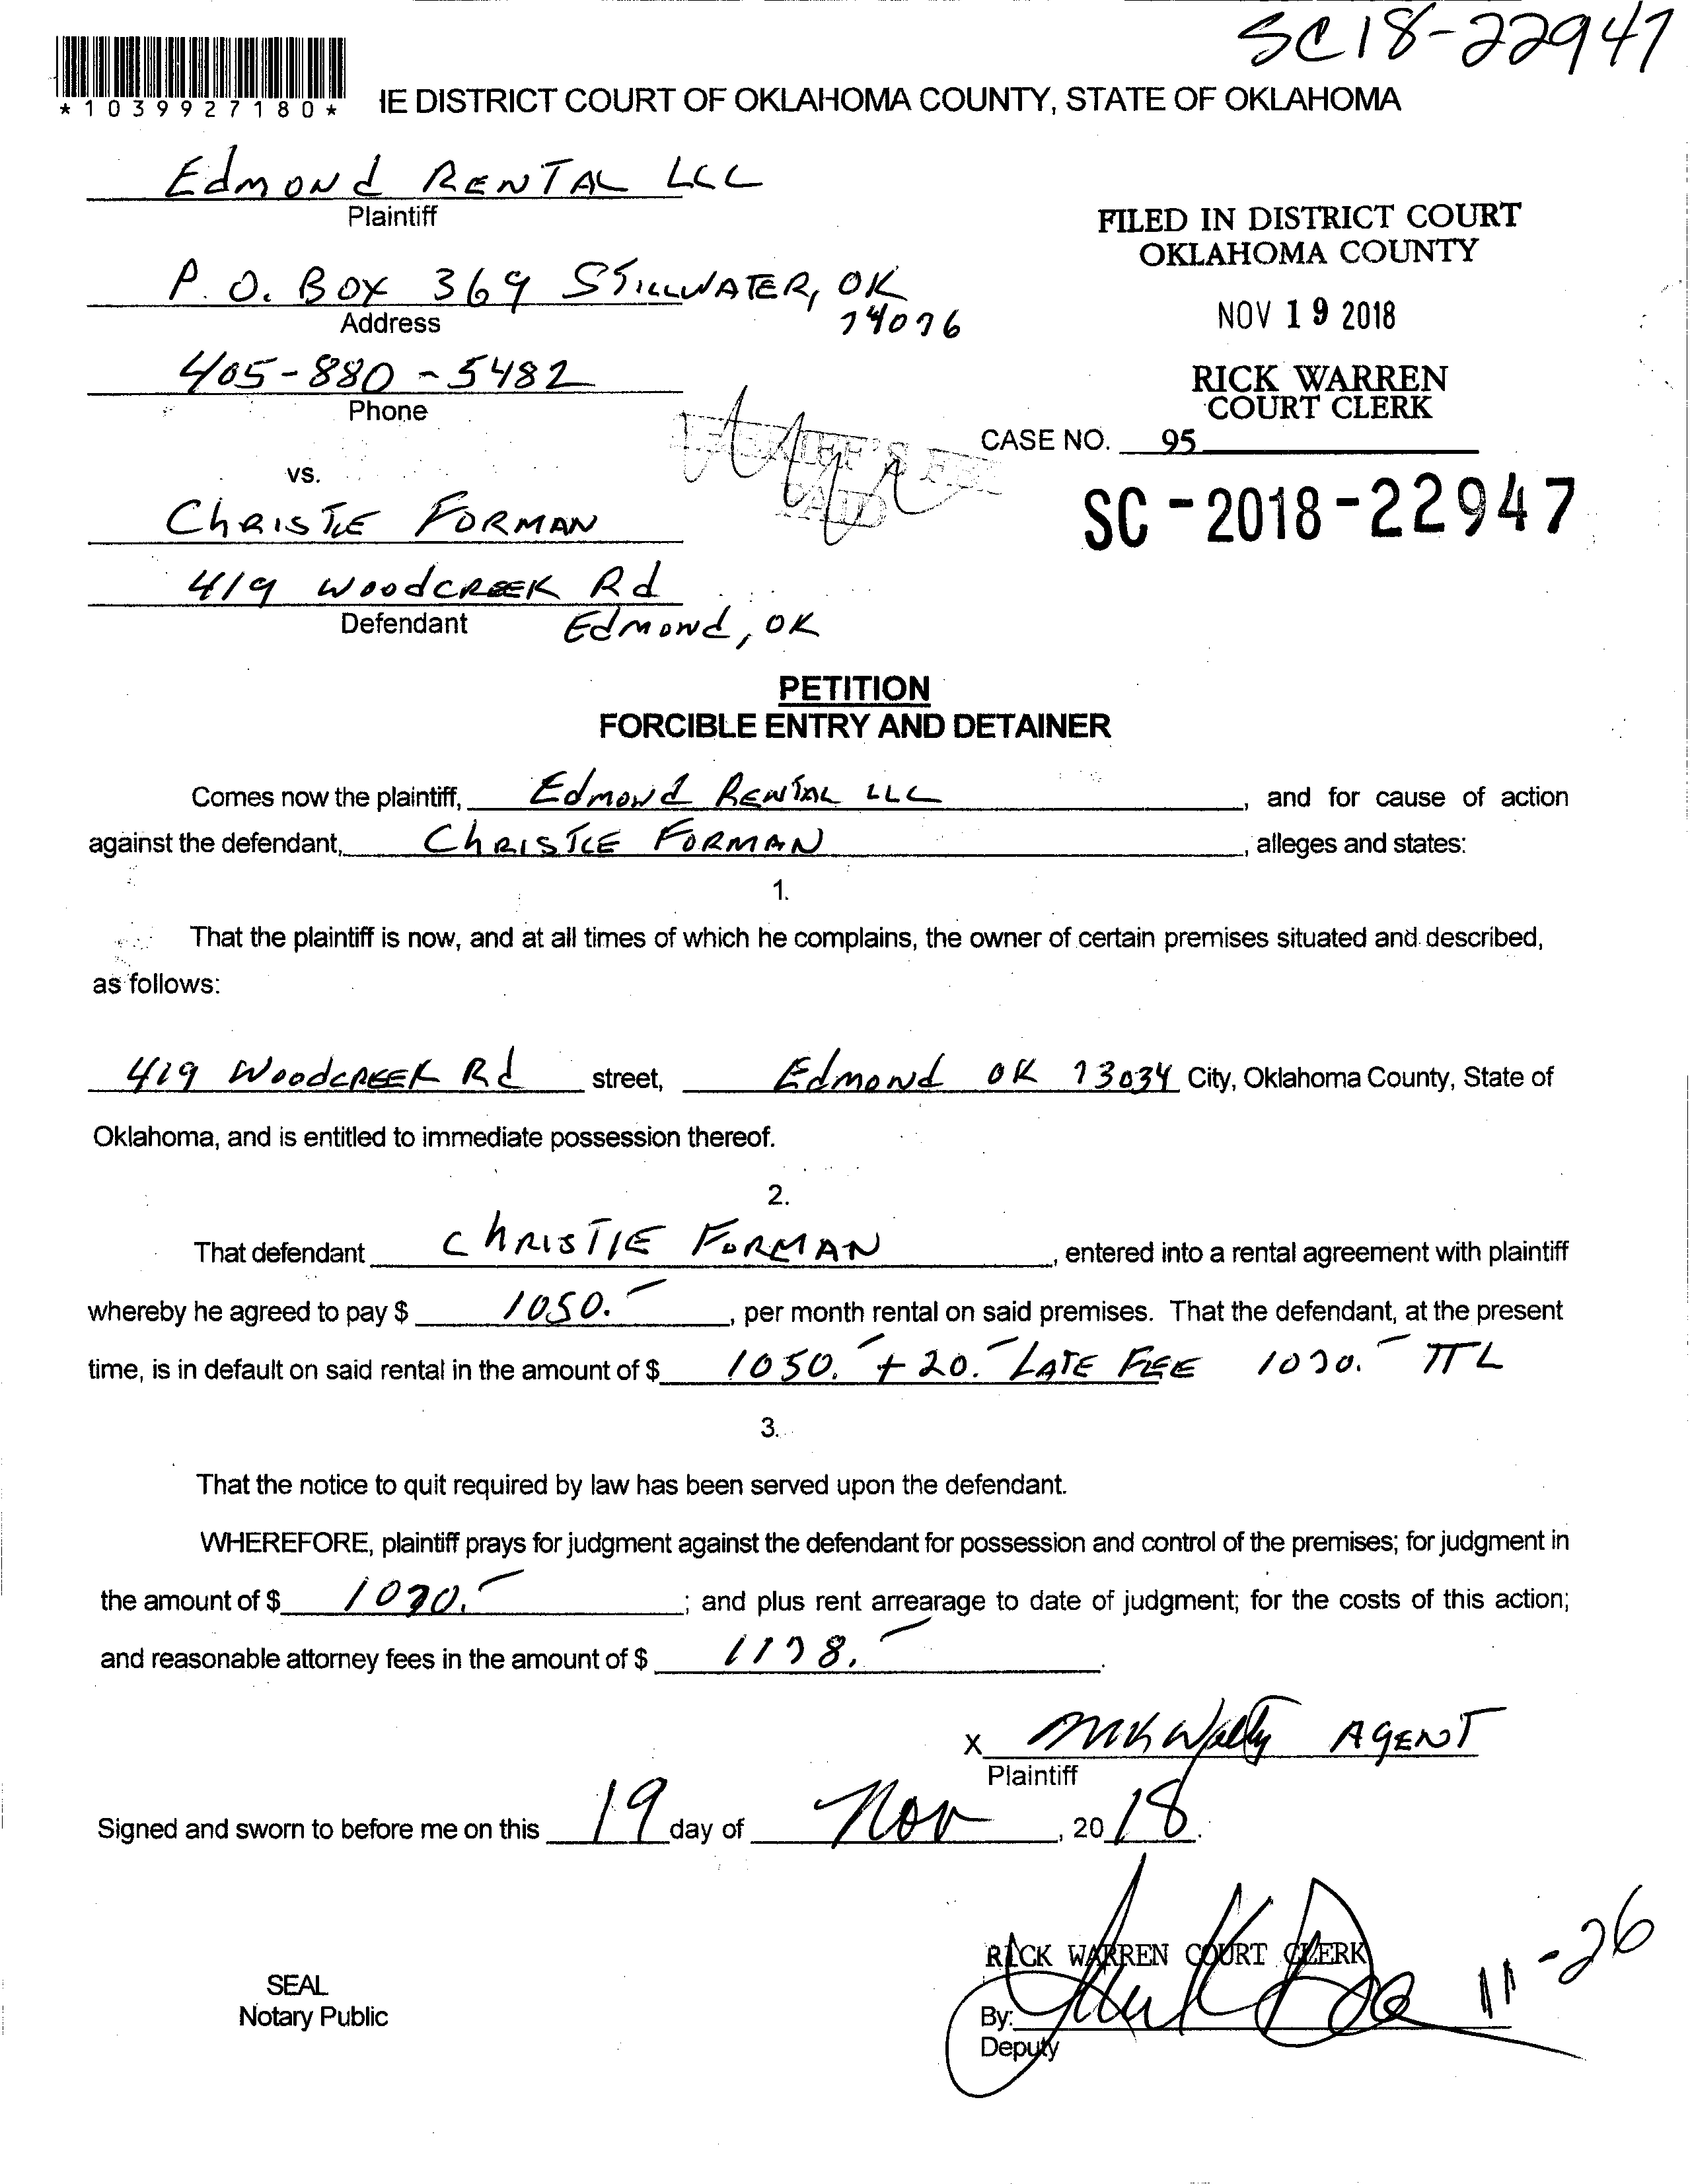 SC18-22947
*1039927180*
IE DISTRICT COURT OF OKLAHOMA COUNTY, STATE OF OKLAHOMA
Edmond RENTAL LLC
Plaintiff
FILED IN DISTRICT COURT
OKLAHOMA COUNTY
P.O. BOX 369 STILLWATER, OK
74076
Address
NOV 19 2018
405-880-5482
Phone
RICK WARREN
COURT CLERK
CASE NO. 95
SHERIFF'S FEE
PAID
vs.
SC-2018-22947
ChRISTIE FORMAN
419 WoodCREEK Rd
Defendant Edmond, OK
PETITION
FORCIBLE ENTRY AND DETAINER
Comes now the plaintiff, Edmond RENTAL LLC, and for cause of action
against the defendant, ChRISTIE FORMAN, alleges and states:
1.
That the plaintiff is now, and at all times of which he complains, the owner of certain premises situated and described,
as follows:
419 WoodCREEK Rd street, Edmond OK 73034 City, Oklahoma County, State of
Oklahoma, and is entitled to immediate possession thereof.
2.
That defendant ChRISTIE FORMAN, entered into a rental agreement with plaintiff
whereby he agreed to pay $ 1050.-, per month rental on said premises. That the defendant, at the present
time, is in default on said rental in the amount of $ 1050.- + 20.- LATE FEE 1070.- TTL
3.
That the notice to quit required by law has been served upon the defendant.
WHEREFORE, plaintiff prays for judgment against the defendant for possession and control of the premises; for judgment in
the amount of $ 1070.-; and plus rent arrearage to date of judgment; for the costs of this action;
and reasonable attorney fees in the amount of $ 1178.-.
X AGENT
Plaintiff
Signed and sworn to before me on this 19 day of Nov, 2018.
RICK WARREN COURT CLERK
11-26
SEAL
Notary Public
By:
Deputy